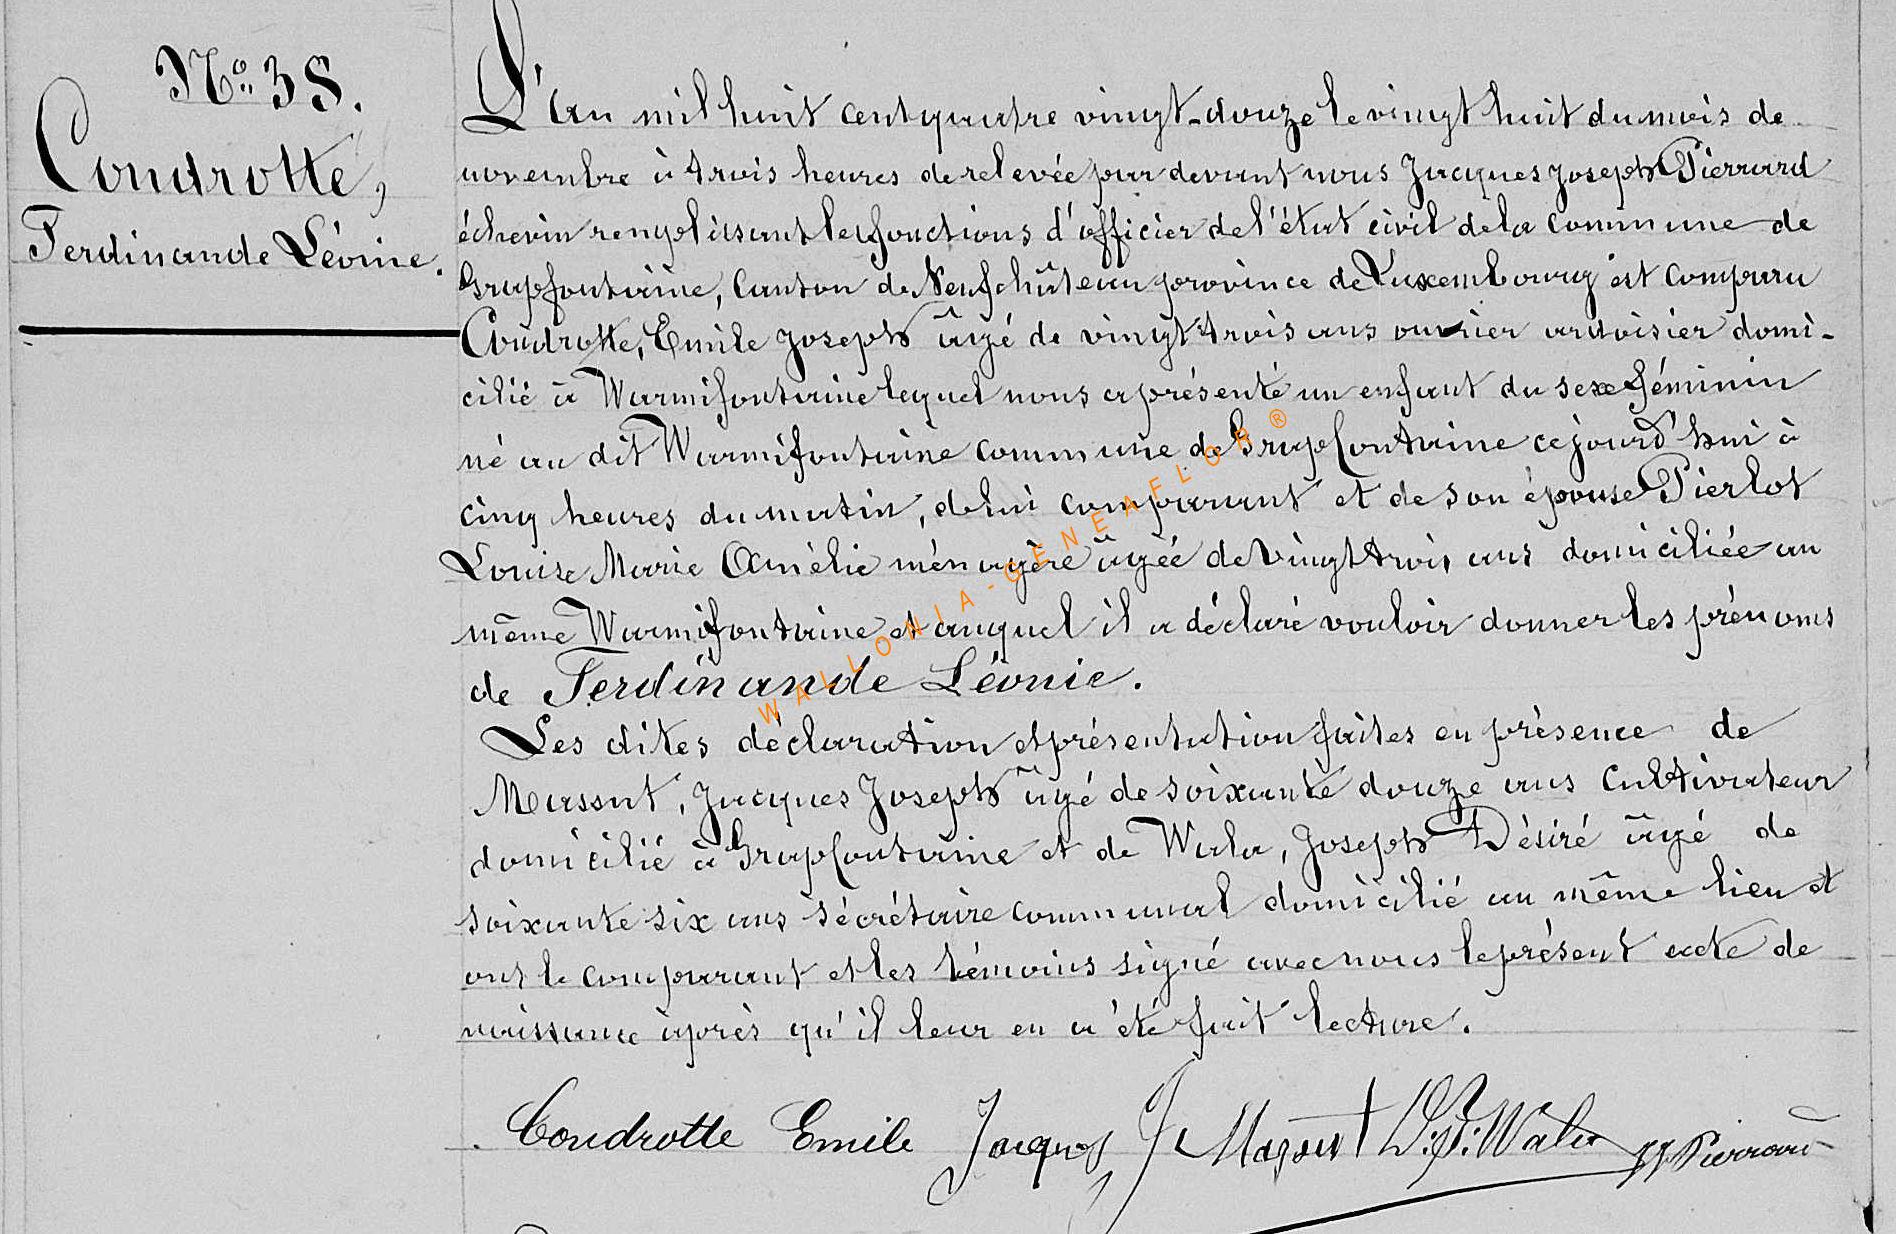 No 38.
Condrotte,
Ferdinande Léonie.
L'an mil huit cent quatre vingt-douze le vingt huit du mois de
novembre à trois heures de relevée par devant nous Jacques Joseph Pierrard
échevin remplissant les fonctions d'officier de l'état civil de la commune de
Grapfontaine, Canton de Neufchâteau province de Luxembourg est comparu
Condrotte, Emile Joseph âgé de vingt trois ans ouvrier ardoisier domi-
cilié à Warmifontaine lequel nous a présenté un enfant du sexe féminin
né au dit Warmifontaine commune de Grapfontaine ce jourd'hui à
cinq heures du matin, de lui comparant et de son épouse Pierlot
Louise Marie Amélie ménagère âgée de vingt trois ans domiciliée au
même Warmifontaine et auquel il a déclaré vouloir donner les prénoms
de Ferdinande Léonie.
Les dites déclaration et présentation faites en présence de
Massut, Jacques Joseph âgé de soixante douze ans Cultivateur
domicilié à Grapfontaine et de Wala, Joseph Désiré âgé de
soixante six ans sécrétaire communal domicilié au même lieu et
ont le comparant et les témoins signé avec nous le présent acte de
naissance après qu'il leur en a été fait lecture.
Condrotte Emile Jacques J Massut D.J. Wala JJ Pierrard
WALLONIA-GENEAFLOR®